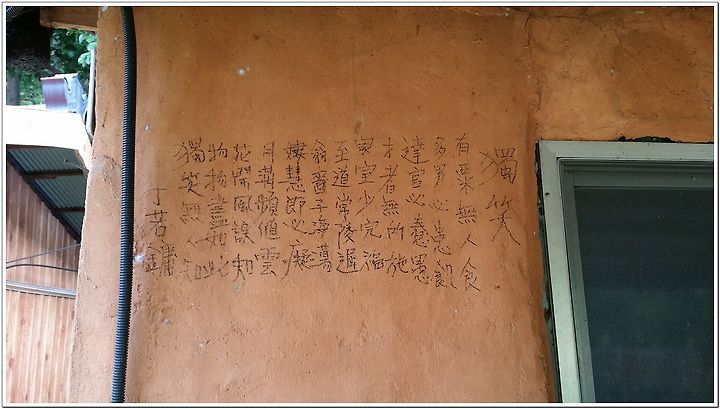 獨笑
有粟無人食
多男必患飢
達官必憃愚
才者無所施
家室少完福
至道常陵遲
翁嗇子每蕩
婦慧郎必癡
月滿頻値雲
花開風誤知
物物盡如此
獨笑無人知
丁若鏞